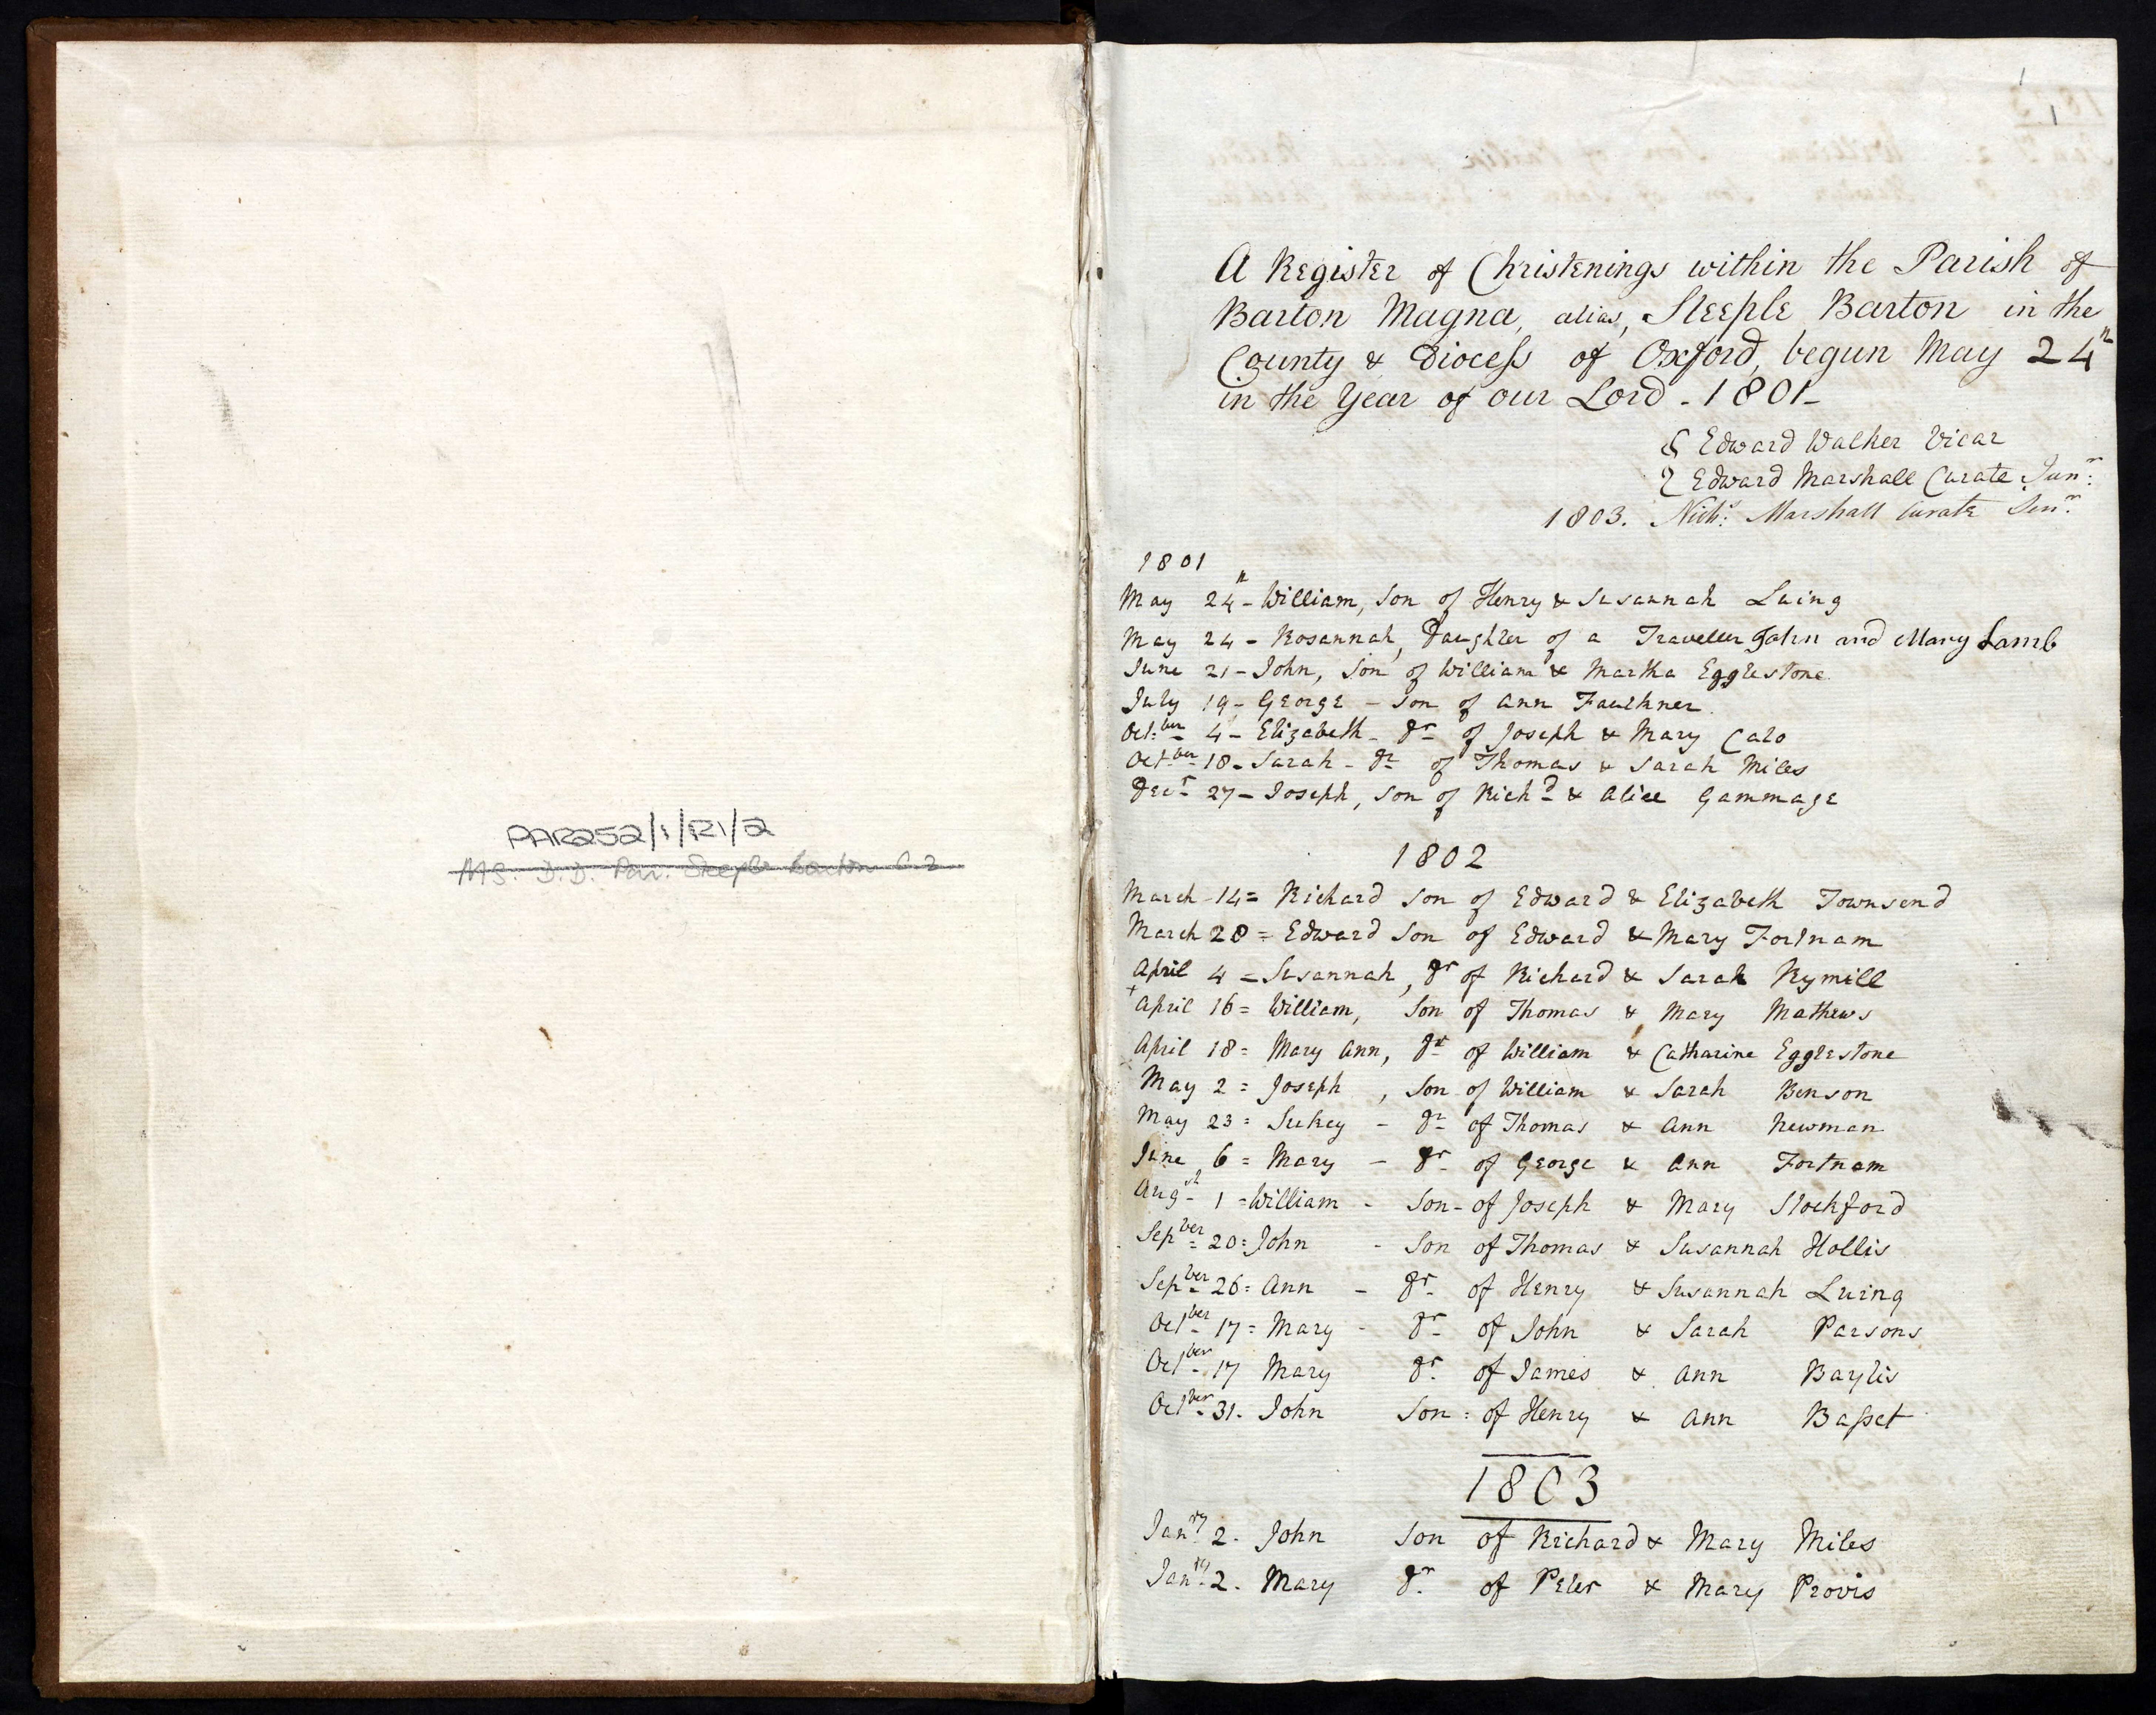 PAR252/1/R1/2
MS. D.D. Par. Steeple Barton c.2
1
A Register of Christenings within the Parish of
Barton Magna, alias, Steeple Barton in the
County & Diocess of Oxford, begun May 24th
in the Year of our Lord - 1801 -
Edward Walker Vicar
Edward Marshall Curate Junr:
1803. Nichs: Marshall Curate Senr:
1801
May 24th - William, Son of Henry & Susannah Luing
May 24 - Rosannah, Daughter of a Traveller John and Mary Lamb
June 21 - John, Son of William & Martha Egglestone
July 19 - George - Son of Ann Faulkner.
Octber 4 - Elizabeth - Dr of Joseph & Mary Calo
Octber 18 - Sarah - Dr of Thomas & Sarah Miles
Decr 27 - Joseph, Son of Richd & Alice Gammage
1802
March - 14 = Richard Son of Edward & Elizabeth Townsend
March 28 = Edward Son of Edward & Mary Fortnam
April 4 = Susannah, Dr of Richard & Sarah Rymill
+ April 16 = William, Son of Thomas & Mary Mathews
April 18 = Mary Ann, Dr of William & Catharine Egglestone
May 2 = Joseph, Son of William & Sarah Benson
May 23 = Sukey - Dr of Thomas & Ann Newman
June 6 = Mary - Dr of George & Ann Fortnam
Augst 1 = William - Son - of Joseph & Mary Stockford
Sepber 20 = John - Son of Thomas & Susannah Hollis
Sepber 26 = Ann - Dr of Henry & Susannah Luing
Octber 17 = Mary - Dr of John & Sarah Parsons
Octber 17 Mary Dr of James & Ann Baylis
Octber 31. John Son = of Henry & Ann Basset
1803
Janry 2. John Son of Richard & Mary Miles
Janry 2. Mary Dr of Peter & Mary Provis